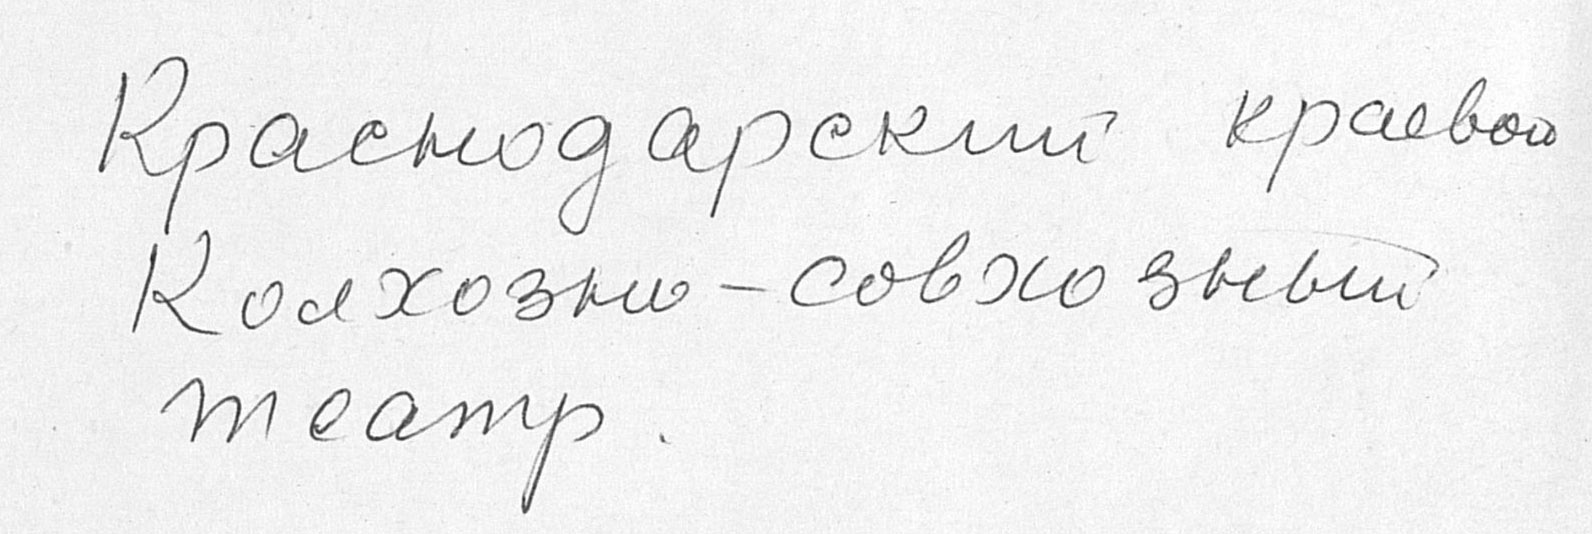 Краснодарский краевой
Колхозно-совхозный
театр.